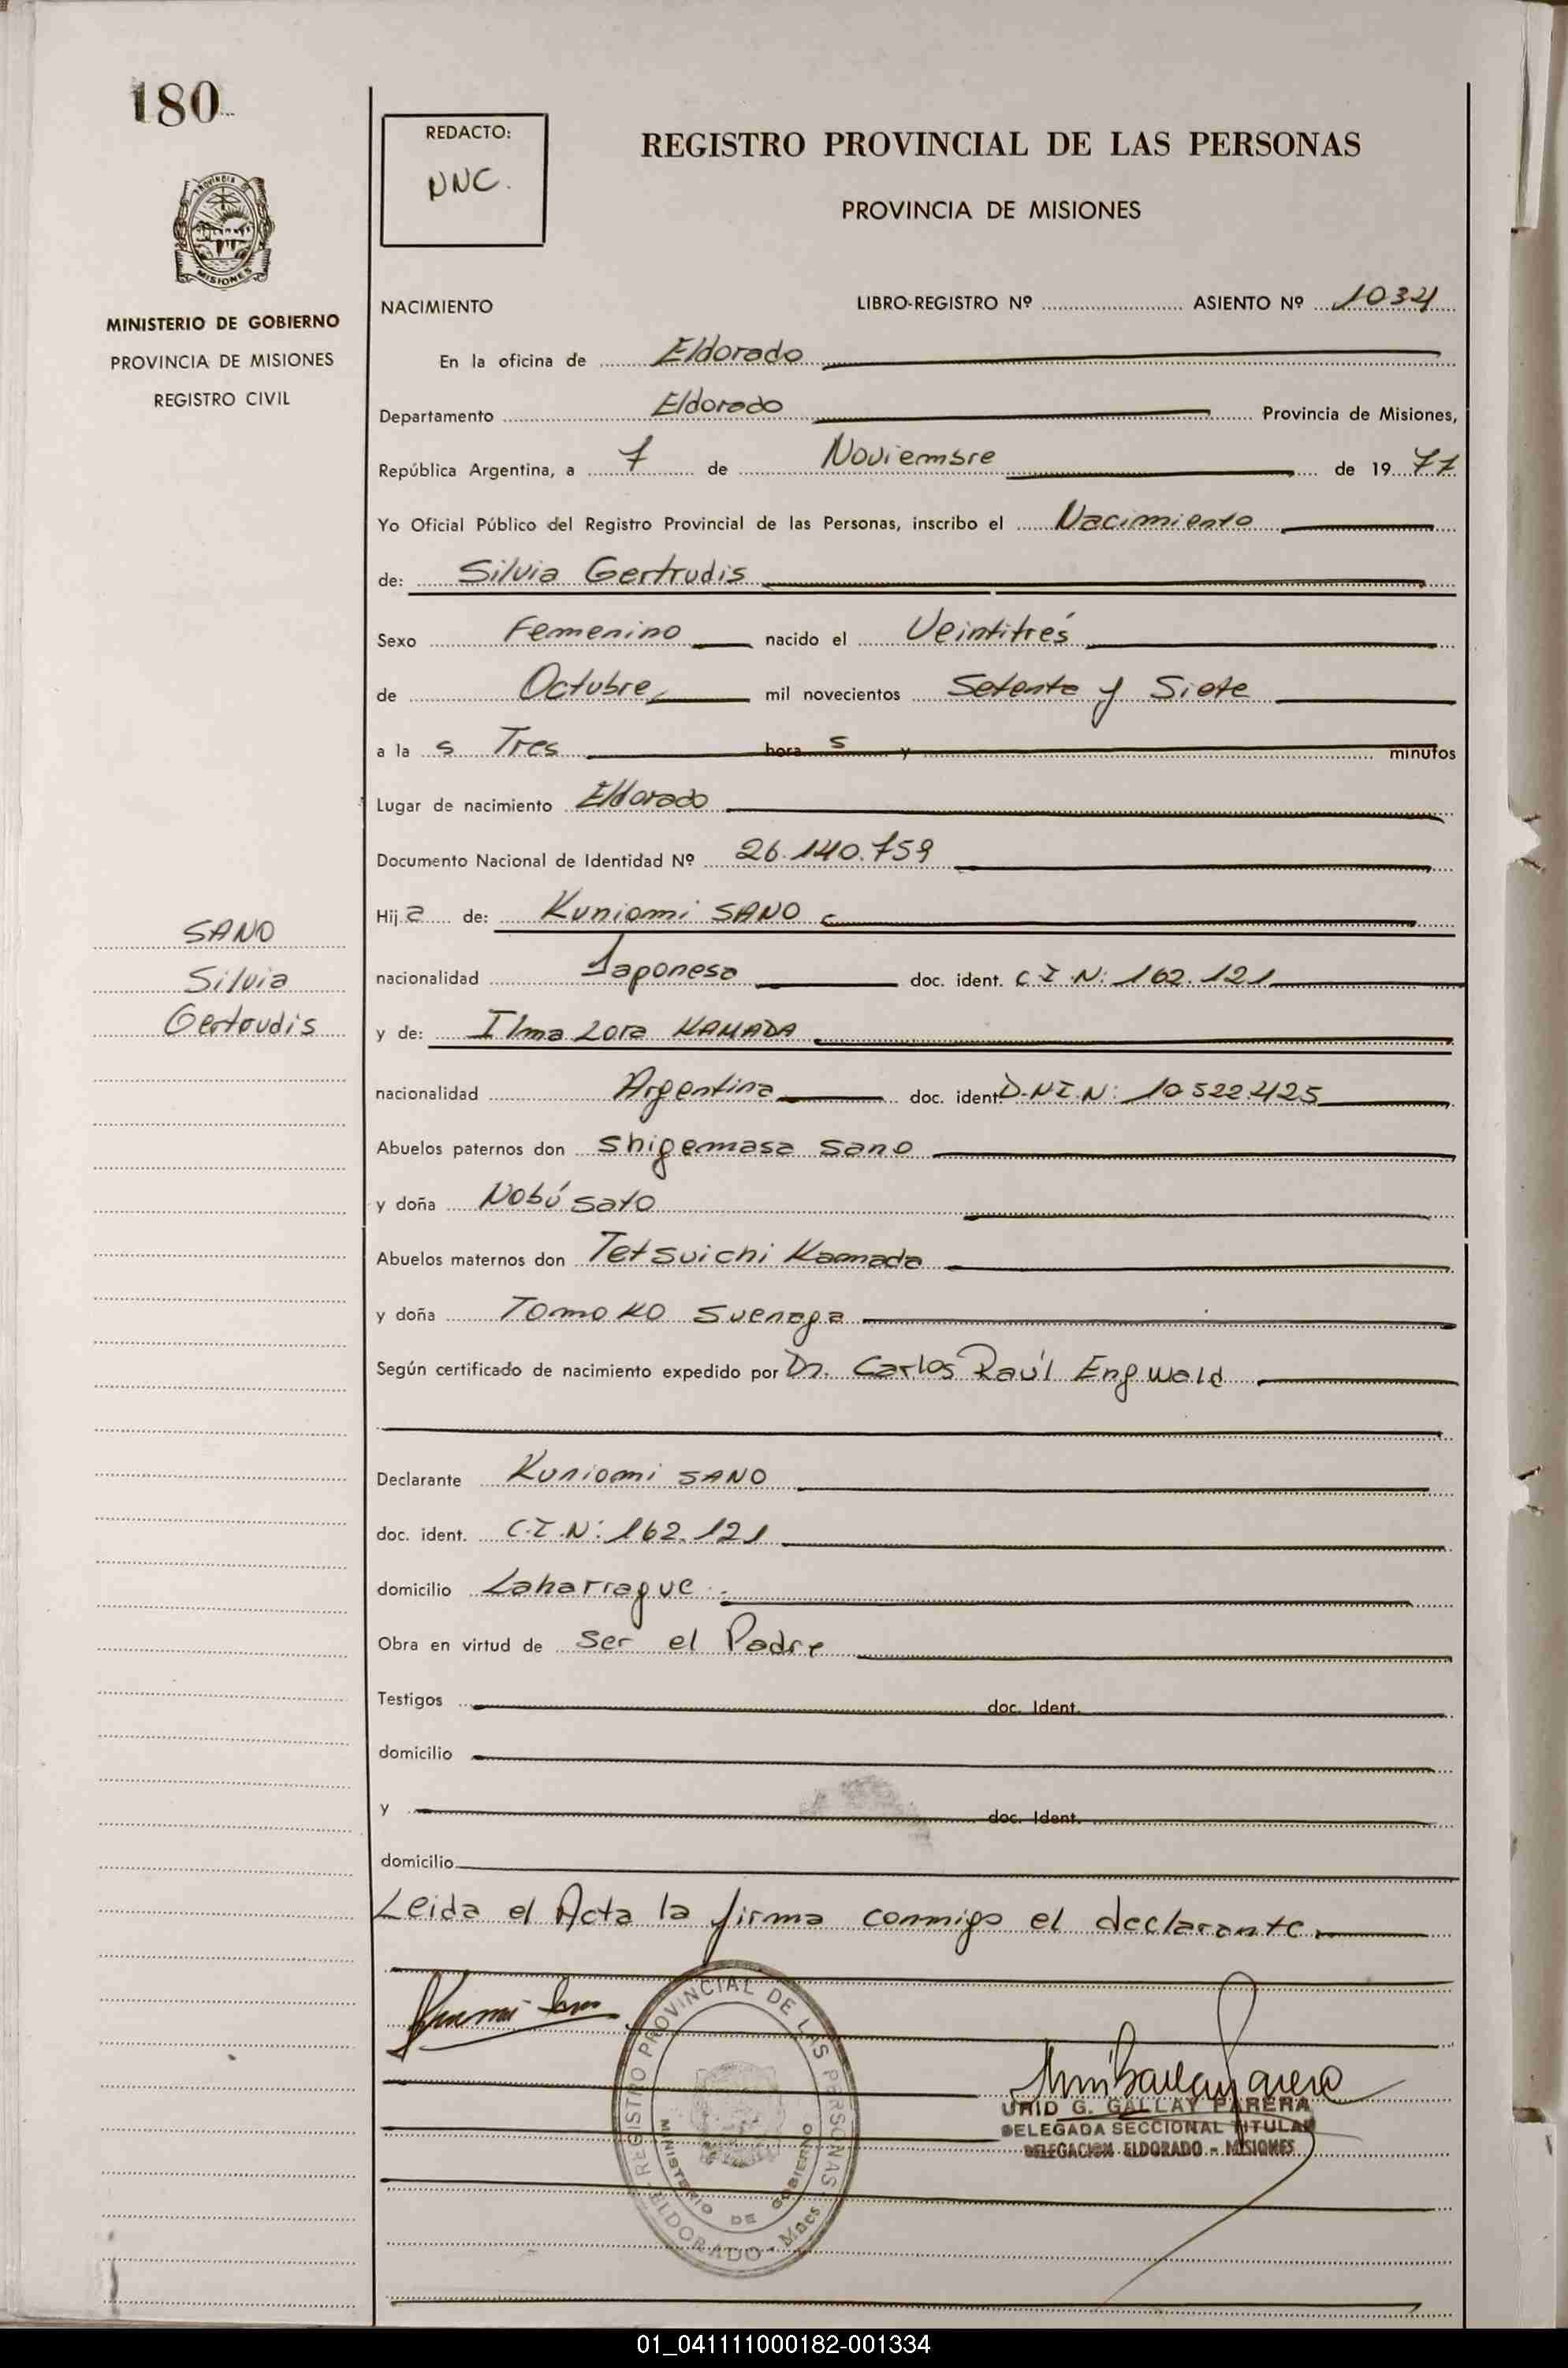 180
REDACTO:
NNC.
REGISTRO PROVINCIAL DE LAS PERSONAS
PROVINCIA DE MISIONES
MISIONES
MINISTERIO DE GOBIERNO
PROVINCIA DE MISIONES
REGISTRO CIVIL
NACIMIENTO LIBRO-REGISTRO Nº ASIENTO Nº 1034
En la oficina de Eldorado
Departamento Eldorado Provincia de Misiones,
República Argentina, a 7 de Noviembre de 19 77
Yo Oficial Público del Registro Provincial de las Personas, inscribo el Nacimiento
de: Silvia Gertrudis
Sexo Femenino nacido el Veintitrés
de Octubre mil novecientos Setenta y Siete
a la s Tres hora s y minutos
Lugar de nacimiento Eldorado
Documento Nacional de Identidad Nº 26.140.759
Hij a de: Kuniomi SANO
SANO
Silvia
Gertrudis
nacionalidad Japonesa doc. ident. C.I.N: 162.121
y de: Ilma Lora KAMADA
nacionalidad Argentina doc. ident. D.N.I.N: 10.522.425
Abuelos paternos don Shigemasa Sano
y doña Nobú Sato
Abuelos maternos don Tetsuichi Kamada
y doña Tomoko Suenaga
Según certificado de nacimiento expedido por Dr. Carlos Raúl Engwald
Declarante Kuniomi SANO
doc. ident. C.I.N: 162.121
domicilio Laharrague
Obra en virtud de Ser el Padre
Testigos doc. Ident.
domicilio
y doc. Ident.
domicilio
Leida el Acta la firma conmigo el declarante
REGISTRO PROVINCIAL DE LAS PERSONAS
MINISTERIO DE GOBIERNO
ELDORADO - Mnes
G. GALLAY PARERA
DELEGADA SECCIONAL TITULAR
DELEGACION ELDORADO - MISIONES
01_041111000182-001334